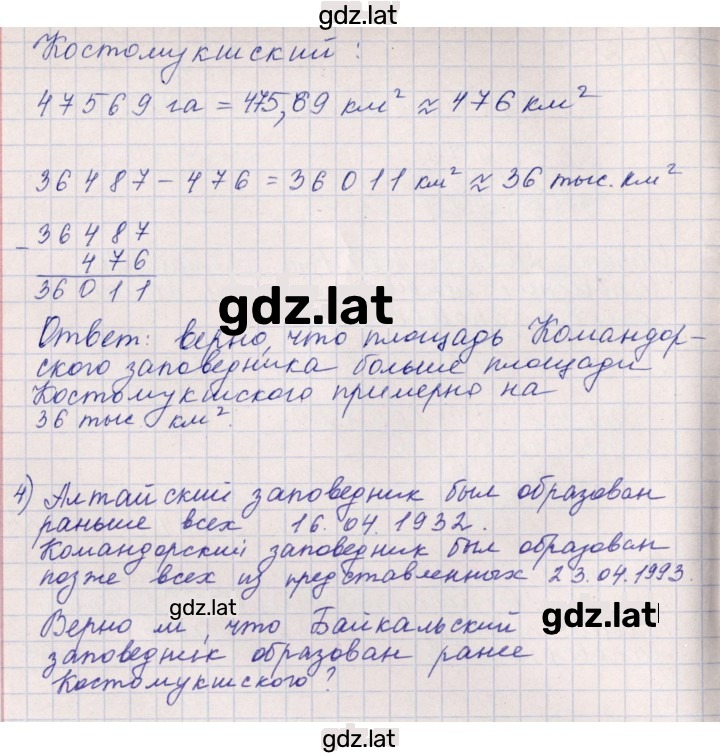 gdz.lat
Костомукшский:
47569 га = 475,69 км² ≈ 476 км²
36487 - 476 = 36011 км² ≈ 36 тыс. км²
- 36487
476
36011
gdz.lat
Ответ: верно, что площадь Командор-
ского заповедника больше площади
Костомукшского примерно на
36 тыс км².
4) Алтайский заповедник был образован
раньше всех 16.04.1932.
Командорский заповедник был образован
позже всех из представленных 23.04.1993.
gdz.lat
gdz.lat
Верно ли, что Байкальский
заповедник образован ранее
Костомукшского?
gdz.lat